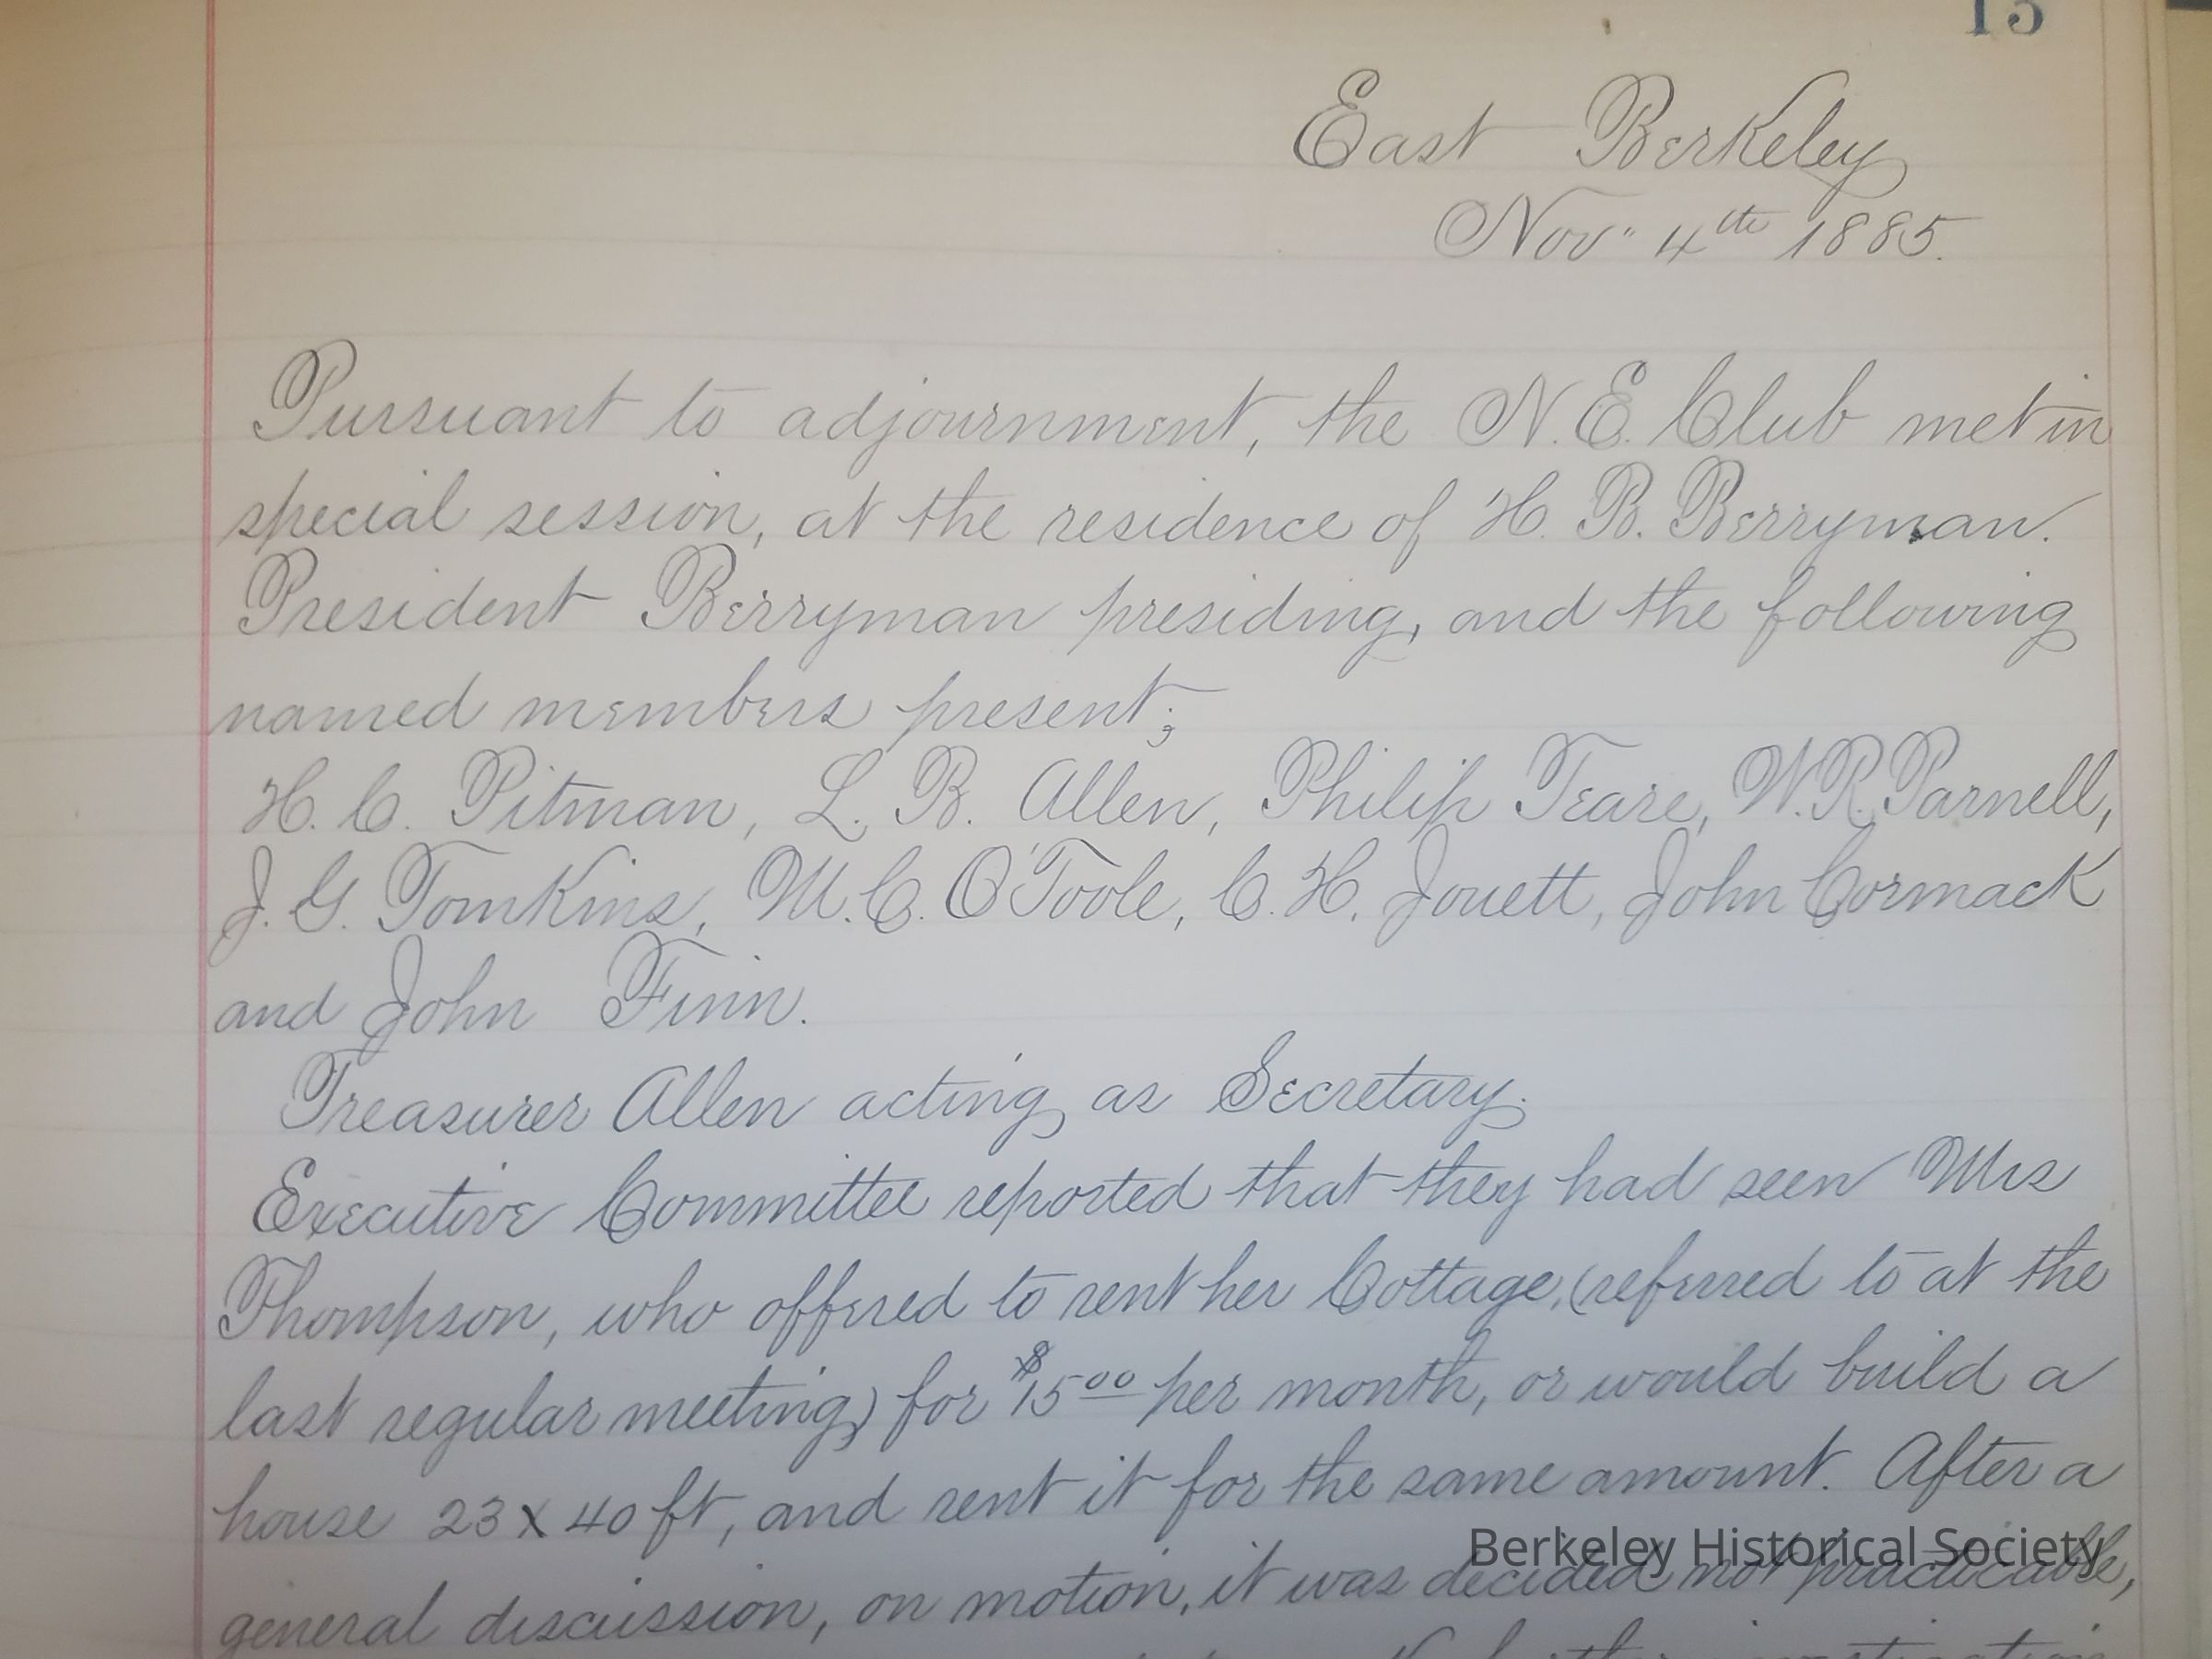 15
East Berkeley
Nov. 4th 1885.
Pursuant to adjournment, the N.E. Club met in
special session, at the residence of H. B. Berryman.
President Berryman presiding, and the following
named members present;
H. C. Pitman, L. B. Allen, Philip Teare, W.R. Parnell,
J. G. Tomkins, M.C. O'Toole, C. H. Jouett, John Cormack
and John Finn.
Treasurer Allen acting as Secretary.
Executive Committee reported that they had seen Mrs
Thompson, who offered to rent her Cottage, (referred to at the
last regular meeting) for $15.00 per month, or would build a
house 23 x 40 ft, and rent it for the same amount. After a
general discussion, on motion, it was decided not practicable,
Berkeley Historical Society